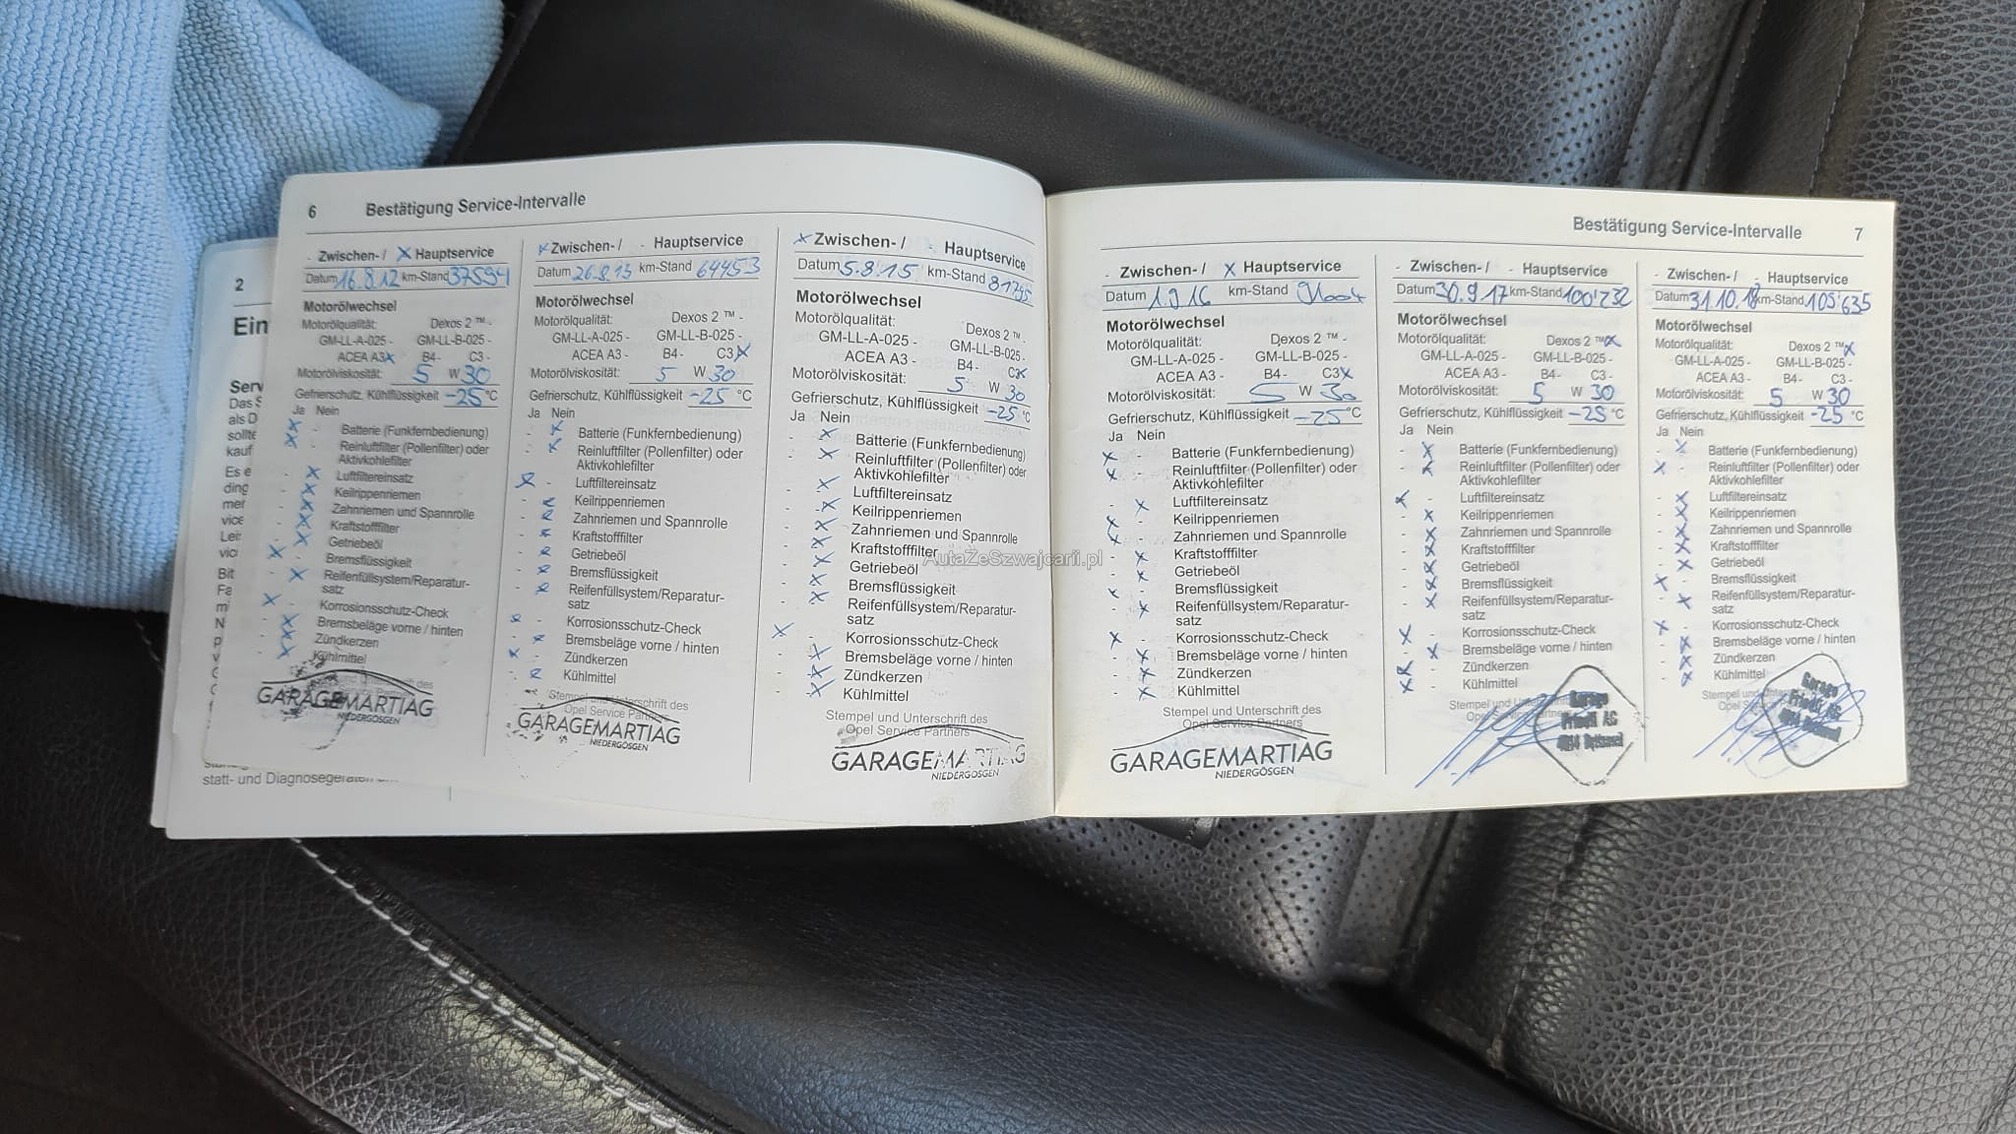 6 Bestätigung Service-Intervalle
Zwischen- / x Hauptservice
Datum 16.8.12 km-Stand 37594
Motorölwechsel
Motorölqualität: Dexos 2 ™ -
GM-LL-A-025 - GM-LL-B-025 -
ACEA A3x B4- C3 -
Motorölviskosität: 5 W 30
Gefrierschutz, Kühlflüssigkeit -25 °C
Ja Nein
Batterie (Funkfernbedienung)
Reinluftfilter (Pollenfilter) oder
Aktivkohlefilter
Luftfiltereinsatz
Keilrippenriemen
Zahnriemen und Spannrolle
Kraftstofffilter
Getriebeöl
Bremsflüssigkeit
Reifenfüllsystem/Reparatur-
satz
Korrosionsschutz-Check
Bremsbeläge vorne / hinten
Zündkerzen
Kühlmittel
GARAGEMARTIAG
NIEDERGÖSGEN
x Zwischen- / - Hauptservice
Datum 26.8.13 km-Stand 64453
Motorölwechsel
Motorölqualität: Dexos 2 ™ -
GM-LL-A-025 - GM-LL-B-025 -
ACEA A3 - B4- C3x
Motorölviskosität: 5 W 30
Gefrierschutz, Kühlflüssigkeit -25 °C
Ja Nein
Batterie (Funkfernbedienung)
Reinluftfilter (Pollenfilter) oder
Aktivkohlefilter
Luftfiltereinsatz
Keilrippenriemen
Zahnriemen und Spannrolle
Kraftstofffilter
Getriebeöl
Bremsflüssigkeit
Reifenfüllsystem/Reparatur-
satz
Korrosionsschutz-Check
Bremsbeläge vorne / hinten
Zündkerzen
Kühlmittel
Stempel und Unterschrift des
Opel Service Partners
GARAGEMARTIAG
NIEDERGÖSGEN
x Zwischen- / - Hauptservice
Datum 5.8.15 km-Stand 81795
Motorölwechsel
Motorölqualität: Dexos 2 ™ -
GM-LL-A-025 - GM-LL-B-025 -
ACEA A3 - B4- C3x
Motorölviskosität: 5 W 30
Gefrierschutz, Kühlflüssigkeit -25 °C
Ja Nein
Batterie (Funkfernbedienung)
Reinluftfilter (Pollenfilter) oder
Aktivkohlefilter
Luftfiltereinsatz
Keilrippenriemen
Zahnriemen und Spannrolle
Kraftstofffilter
Getriebeöl
Bremsflüssigkeit
Reifenfüllsystem/Reparatur-
satz
Korrosionsschutz-Check
Bremsbeläge vorne / hinten
Zündkerzen
Kühlmittel
Stempel und Unterschrift des
Opel Service Partners
GARAGEMARTIAG
NIEDERGÖSGEN
Bestätigung Service-Intervalle 7
- Zwischen- / x Hauptservice
Datum 1.9.16 km-Stand
Motorölwechsel
Motorölqualität: Dexos 2 ™ -
GM-LL-A-025 - GM-LL-B-025 -
ACEA A3 - B4- C3x
Motorölviskosität: 5 W 30
Gefrierschutz, Kühlflüssigkeit -25 °C
Ja Nein
Batterie (Funkfernbedienung)
Reinluftfilter (Pollenfilter) oder
Aktivkohlefilter
Luftfiltereinsatz
Keilrippenriemen
Zahnriemen und Spannrolle
Kraftstofffilter
Getriebeöl
Bremsflüssigkeit
Reifenfüllsystem/Reparatur-
satz
Korrosionsschutz-Check
Bremsbeläge vorne / hinten
Zündkerzen
Kühlmittel
Stempel und Unterschrift des
Opel Service Partners
GARAGEMARTIAG
NIEDERGÖSGEN
- Zwischen- / - Hauptservice
Datum 30.9.17 km-Stand 100'232
Motorölwechsel
Motorölqualität: Dexos 2 ™x
GM-LL-A-025 - GM-LL-B-025 -
ACEA A3 - B4- C3 -
Motorölviskosität: 5 W 30
Gefrierschutz, Kühlflüssigkeit -25 °C
Ja Nein
Batterie (Funkfernbedienung)
Reinluftfilter (Pollenfilter) oder
Aktivkohlefilter
Luftfiltereinsatz
Keilrippenriemen
Zahnriemen und Spannrolle
Kraftstofffilter
Getriebeöl
Bremsflüssigkeit
Reifenfüllsystem/Reparatur-
satz
Korrosionsschutz-Check
Bremsbeläge vorne / hinten
Zündkerzen
Kühlmittel
Garage
AG
- Zwischen- / - Hauptservice
Datum 31.10.18 km-Stand 105'635
Motorölwechsel
Motorölqualität: Dexos 2 ™x
GM-LL-A-025 - GM-LL-B-025 -
ACEA A3 - B4- C3 -
Motorölviskosität: 5 W 30
Gefrierschutz, Kühlflüssigkeit -25 °C
Ja Nein
Batterie (Funkfernbedienung)
Reinluftfilter (Pollenfilter) oder
Aktivkohlefilter
Luftfiltereinsatz
Keilrippenriemen
Zahnriemen und Spannrolle
Kraftstofffilter
Getriebeöl
Bremsflüssigkeit
Reifenfüllsystem/Reparatur-
satz
Korrosionsschutz-Check
Bremsbeläge vorne / hinten
Zündkerzen
Kühlmittel
Garage
AG
2
Ein
Serv
Das S
als D
sollte
kauf
Es e
ding
mer
vice
Leir
vici
Bit
Fa
statt- und
AutaZeSzwajcarii.pl